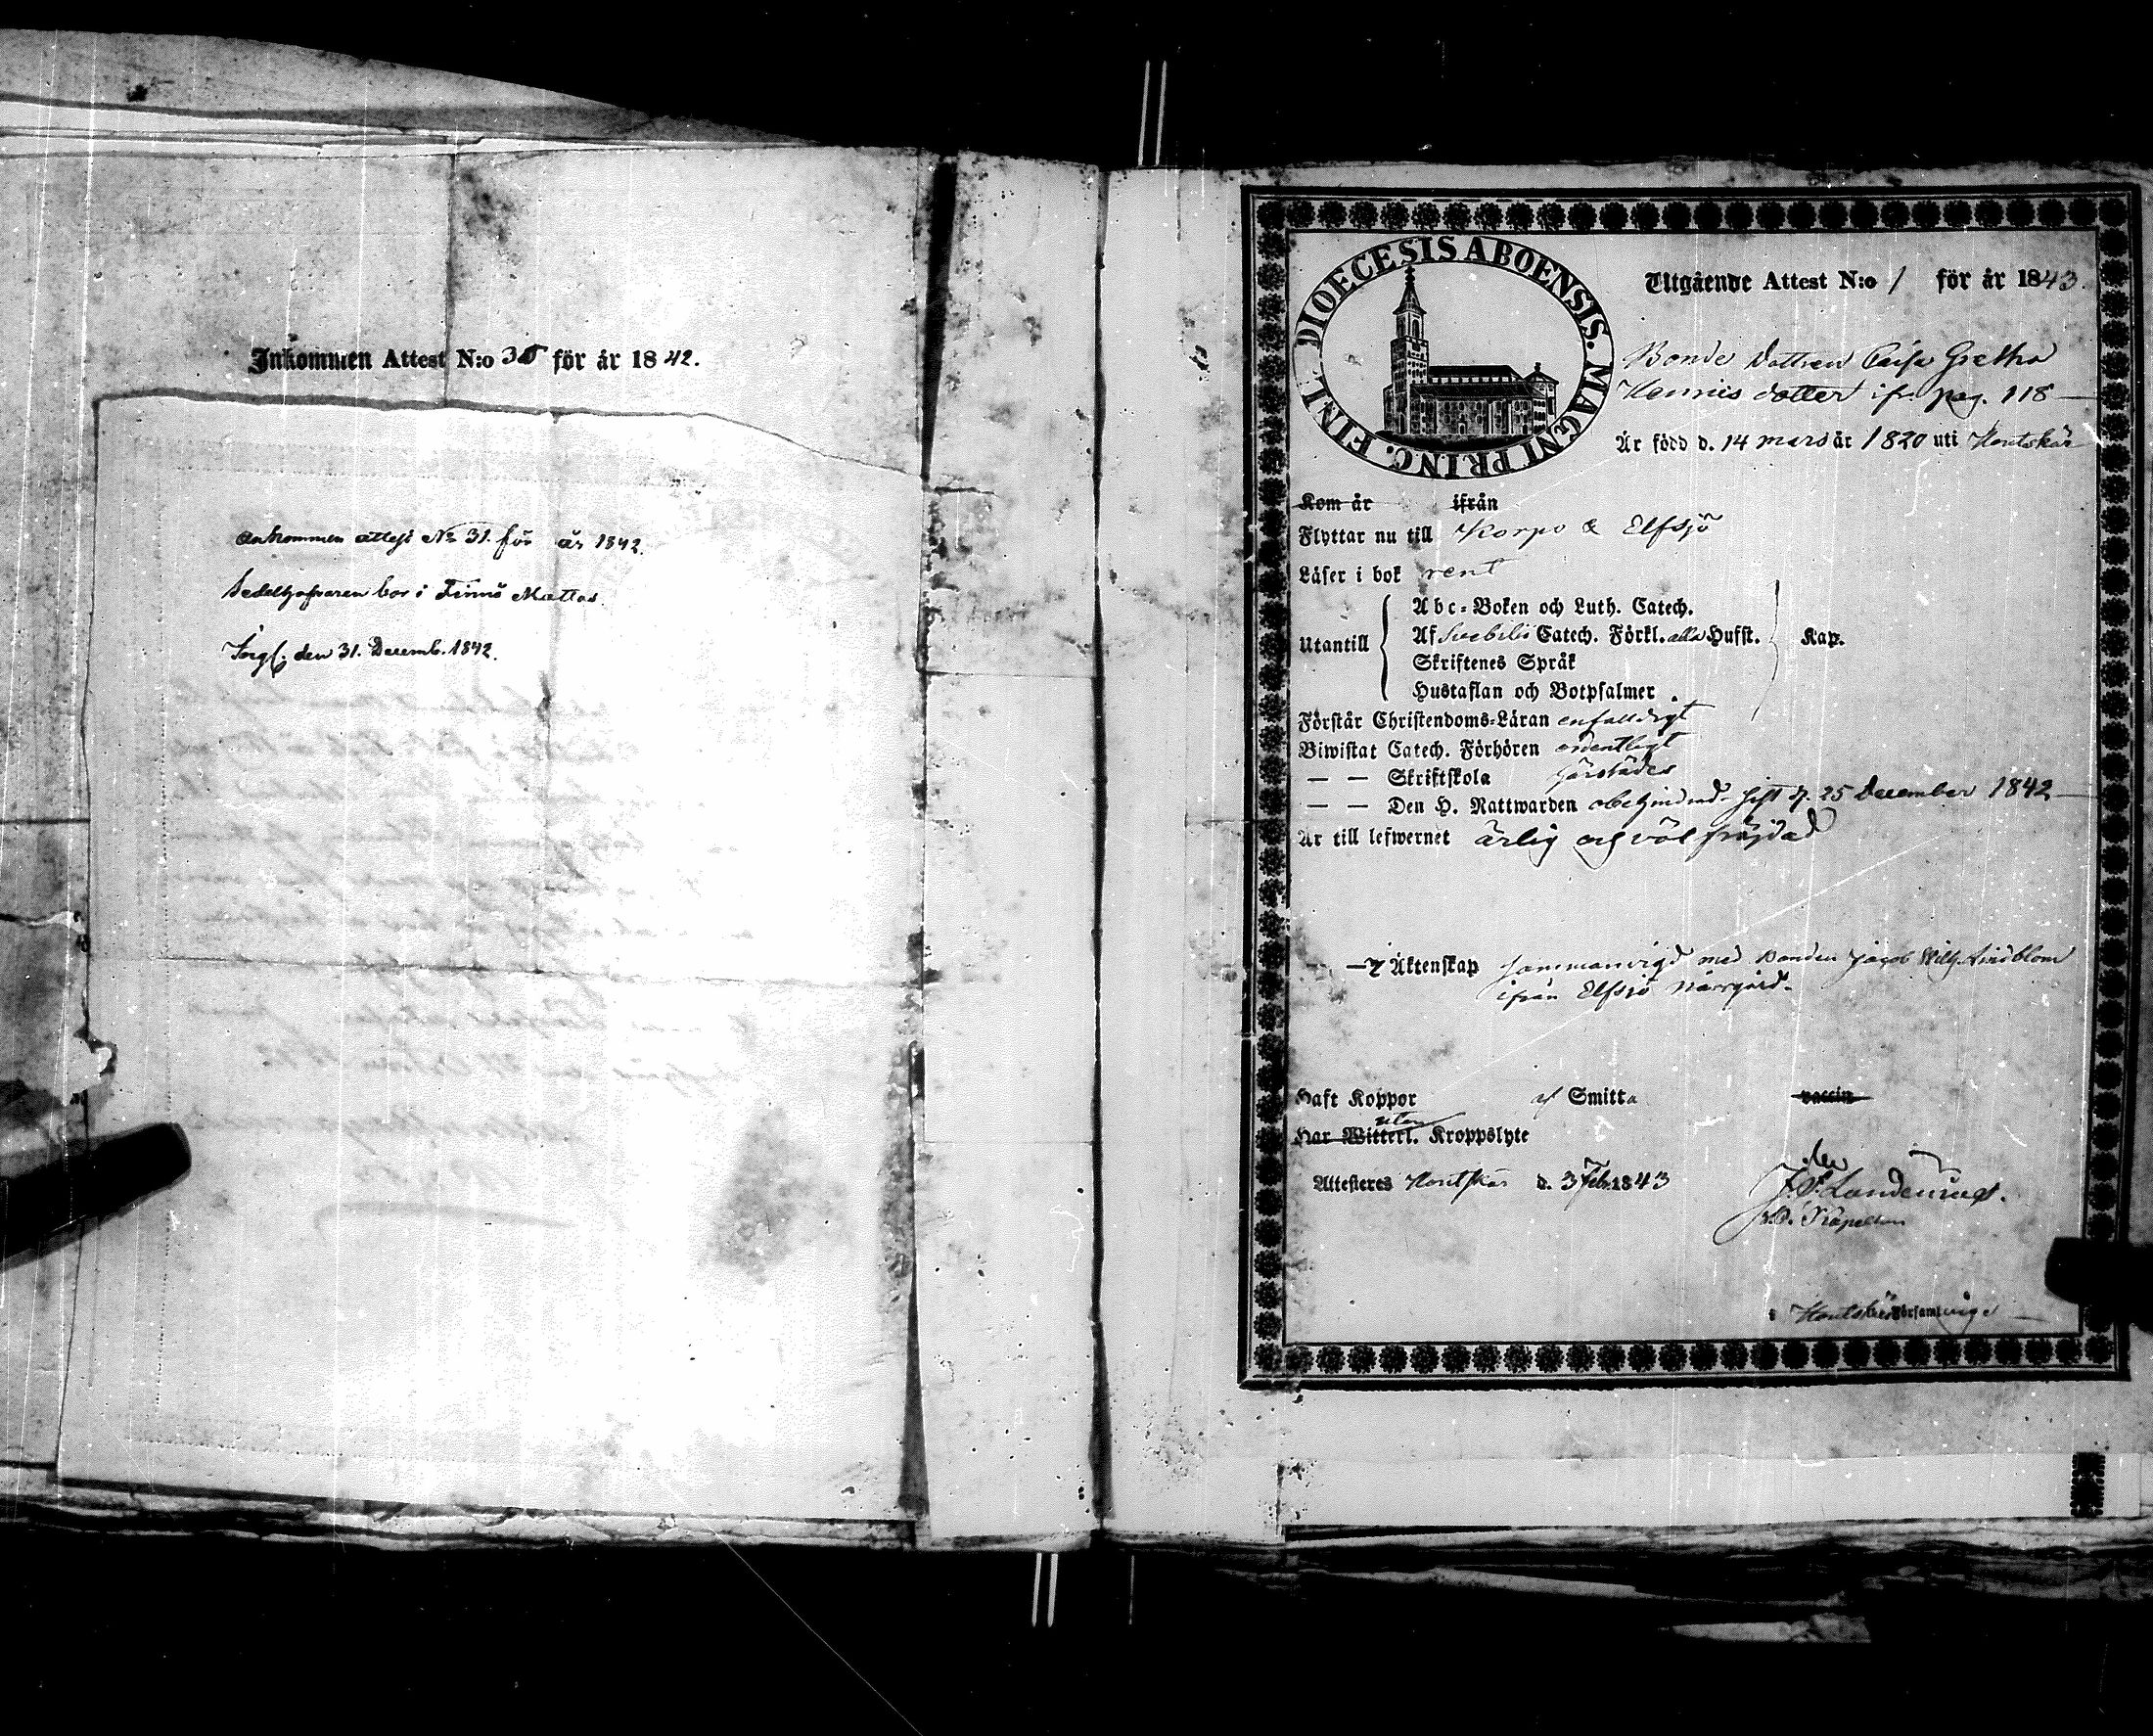 Inkommen Attest N:o 35 för år 1842.
Ankommen attest No 31. för år 1842.
Sedelhafvaren bor i Finnö Mattas.
den 31. Decemb. 1842.
DIOECESIS ABOENSIS. MAGNI PRINC. FINL.
Utgående Attest N:o 1 för år 1843.
Bonde dottren Caisa Gretha
Hennies dotter ifr. pag. 118
Är född d. 14 mars år 1820 uti Houtskär
Kom år ifrån
Flyttar nu till Korpo & Elfsjö
Läser i bok rent
Utantill
Abc-Boken och Luth. Catech.
Af Svebilii Catech. Förkl. alla Hufst.
Skriftenes Språk
Hustaflan och Botpsalmer
Kap.
Förstår Christendoms-Läran enfaldigt
Biwistat Catech. Förhören ordentligt
— — Skriftskola
— — Den H. Nattwarden obehindrad. sist d. 25 December 1842
Är till lefwernet ärlig och väl frejdad
— Äktenskap sammanvigd med Bonden Jacob Wilh. Lindblom
ifrån Elfsjö Norrgård.
Haft Koppor af Smitta vaccin
utan
Har Witterl. Kroppslyte
Attesteres Houtskär d. 3 Febr. 1843
Kapellan
Houtskärs Församlings